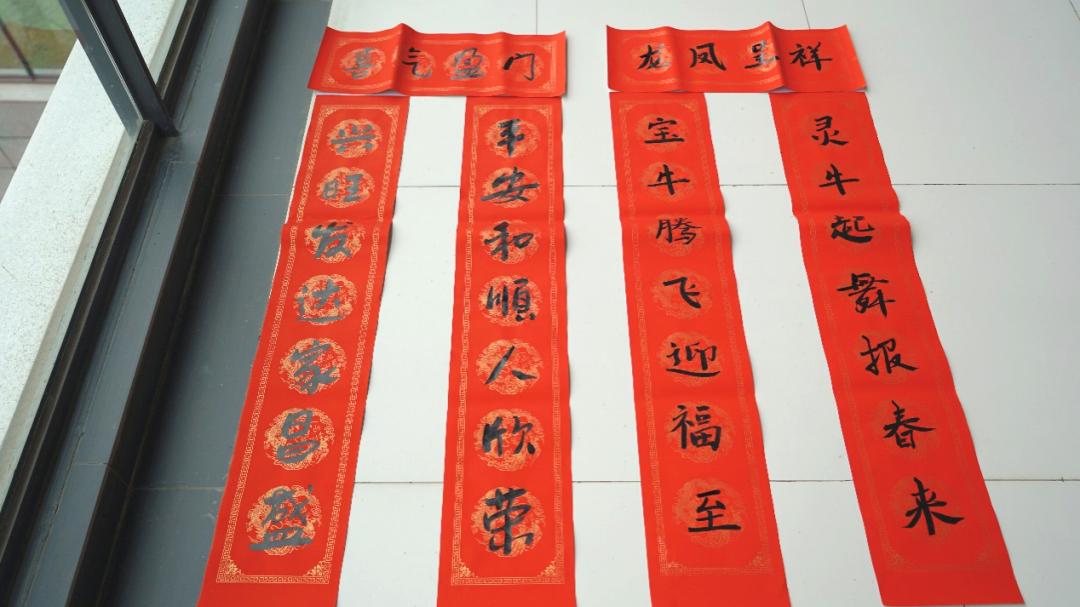 喜气盈门
兴旺发达家昌盛
平安和順人欣荣
龙凤呈祥
宝牛腾飞迎福至
灵牛起舞报春来